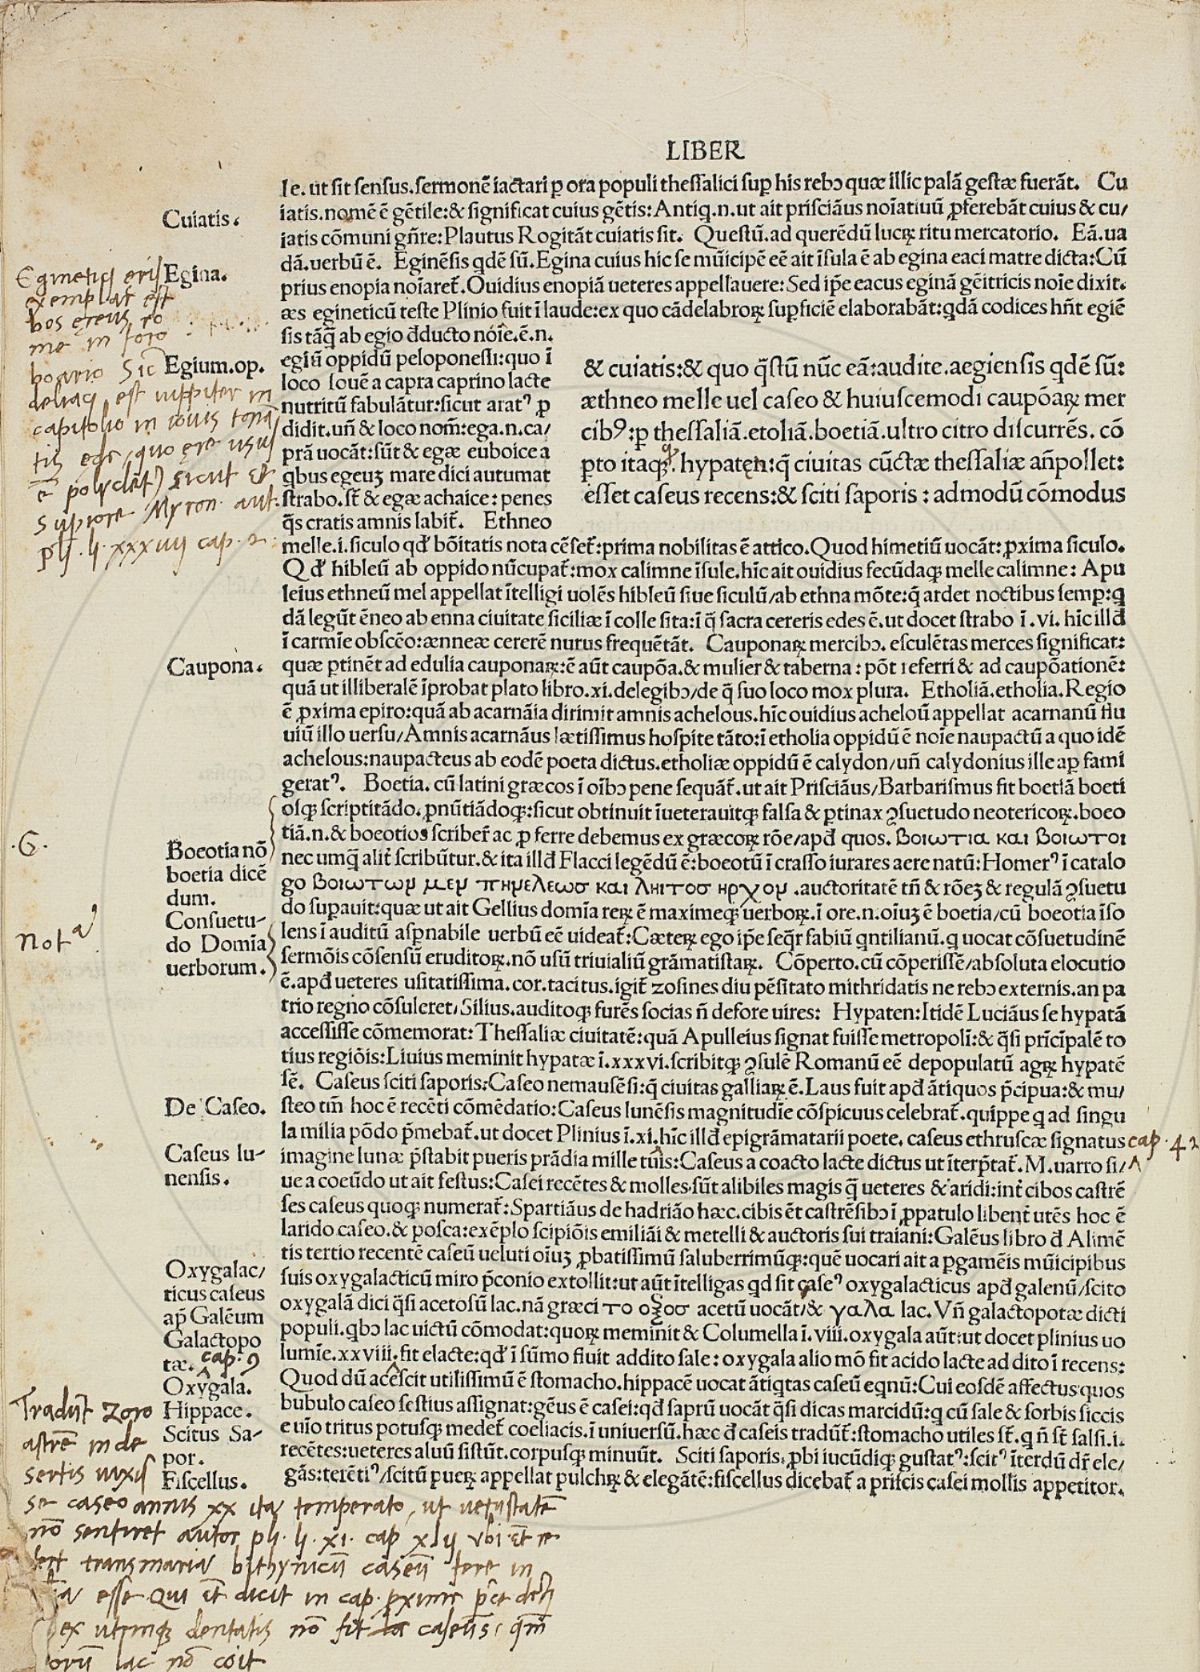 LIBER
le. ut sit sensus. sermonē iactari ꝑ ora populi thessalici suꝑ his rebꝰ quæ illic palā gestæ fuerāt. Cu
iatis. nomē ē gētile: & significat cuius gētis: Antiq. n. ut ait prisciāus noīatiuū ꝓferebāt cuius & cu/
iatis cōmuni gñre: Plautus Rogitāt cuiatis sit. Questū. ad querēdū lucꝝ ritu mercatorio. Eā. ua
dā. uerbū ē. Eginēsis qdē sū. Egina cuius hic se mūicipē eē ait īsula ē ab egina eaci matre dicta: Cū
prius enopia noīaret̄. Ouidius enopiā ueteres appellauere: Sed iꝑe eacus eginā gēitricis noīe dixit.
æs egineticū teste Plinio fuit ī laude: ex quo cādelabroꝝ suꝑficiē elaborabāt: qdā codices hñt egiē
sis tāq̄ ab egio đducto nóīe. ē. n.
egiū oppidū peloponesi: quo ī
loco Iouē a capra caprino lacte
nutritū fabulātur: sicut aratꝰ ꝓ
didit. uñ & loco nom̄: ega. n. ca/
prā uocāt: sūt & egæ euboice a
qbus egeuꝫ mare dici autumat
strabo. st̄ & egæ achaice: penes
q̄s cratis amnis labit̄. Ethneo
& cuiatis: & quo q̄stū nūc eā: audite. aegiensis qdē sū:
æthneo melle uel caseo & huiuscemodi caupōaꝝ mer
cibꝰ: ꝑ thessaliā. etoliā. boetiā. ultro citro discurrēs. cō
ꝑto itaqꝫ. hypatęn: q̄ ciuitas cūctæ thessaliæ añpollet:
esset caseus recens: & sciti saporis: admodū cōmodus
melle. i. siculo qđ bōitatis nota cēset̄: prima nobilitas ē attico. Quod himetiū uocāt: ꝓxima siculo.
Qđ hibleū ab oppido nūcupat̄: mox calimne īsule. hīc ait ouidius fecūdaqꝫ melle calimne: Apu
leius ethneū mel appellat ītelligi uolēs hibleū siue siculū/ab ethna mōte: q̄ ardet noctibus semꝑ: q
dā legūt ēneo ab enna ciuitate siciliæ ī colle sita: ī q̄ sacra cereris edes ē. ut docet strabo ī. vi. hīc illđ
ī carmīe obscēo: ænneæ cererē nurus frequētāt. Cauponaꝝ mercibꝰ. esculētas merces significat:
quæ ꝑtinēt ad edulia cauponaꝝ: ē aūt caupōa. & mulier & taberna: pōt referri & ad caupōationē:
quā ut illiberalē īprobat plato libro. xi. delegibꝰ/de q̄ suo loco mox plura. Etholiā. etholia. Regio
ē ꝓxima epiro: quā ab acarnāia dirimit amnis achelous. hīc ouidius acheloū appellat acarnanū flu
uiū illo uersu/Amnis acarnāus lætissimus hospite tāto: ī etholia oppidū ē noīe naupactū a quo idē
achelous: naupacteus ab eodē poeta dictus. etholiæ oppidū ē calydon/uñ calydonius ille aꝑ fami
geratꝰ. Boetia. cū latini græcos ī oībꝰ pene sequāt̄. ut ait Prisciāus/Barbarismus fit boetiā boeti
osqꝫ scriptitādo. ꝓnūtiādoqꝫ: sicut obtinuit īueterauitqꝫ falsa & ꝑtinax ꝯsuetudo neotericoꝝ. boeo
tiā. n. & boeotios scriber̄ ac ꝓferre debemus ex græcoꝝ rōe/apđ quos. βοιωτια και βοιωτοι
nec umq̄ alit̄ scribūtur. & ita illđ Flacci legēdū ē: boeotū ī crasso iurares aere natū: Homerꝰ ī catalo
go βοιωτων μεν πηνελεωσ και ληιτοσ ηρχον. auctoritatē tñ & rōeꝫ & regulā ꝯsuetu
do suꝑauit: quæ ut ait Gellius domīa reꝝ ē maximeqꝫ uerboꝝ. ī ore. n. oīuꝫ ē boetia/cū boeotia īso
lens ī auditū asꝑnabile uerbū eē uideat̄: Cæteꝝ ego iꝑe seqr̄ fabiū qntilianū. q uocat cōsuetudinē
sermōis cōsensū eruditoꝝ. nō usū triuialiū grāmatistaꝝ. Cōperto. cū cōperisse/absoluta elocutio
ē. apđ ueteres usitatissima. cor. tacitus. igit̄ zosines diu pēsitato mithridatis ne rebꝰ externis. an pa
trio regno cōsuleret/Silius. auditoqꝫ furēs socias ñ defore uires: Hypaten: Itidē Luciāus se hypatā
accessisse cōmemorat: Thessaliæ ciuitatē: quā Apulleius signat fuisse metropolī: & q̄si prīcipālē to
tius regiōis: Liuius meminit hypatæ ī. xxxvi. scribitqꝫ ꝯsulē Romanū eē depopulatū agꝝ hypatē
sē. Caseus sciti saporis: Caseo nemausēsi: q̄ ciuitas galliaꝝ ē. Laus fuit apđ ātiquos p̄cipua: & mu/
steo tm̄ hoc ē recēti cōmēdatio: Caseus lunēsis magnitudīe cōspicuus celebrat̄. quippe q ad singu
la milia pōdo p̄mebat̄. ut docet Plinius ī. xi. hīc illđ epigrāmatarii poete. caseus ethruscæ signatus
imagine lunæ p̄stabit pueris prādia mille tuis: Caseus a coacto lacte dictus ut īterp̄tat̄. M. uarro si/
ue a coeūdo ut ait festus: Casei recētes & molles. sūt alibiles magis q̄ ueteres & aridi: int̄ cibos castrē
ses caseus quoqꝫ numerat̄: Spartiāus de hadriāo hæc. cibis ēt castrēsibꝰ ī ꝓpatulo libent̄ utēs hoc ē
larido caseo. & posca: exēplo scipiōis emiliāi & metelli & auctoris sui traiani: Galēus libro đ Alimē
tis tertio recentē caseū ueluti oīuꝫ ꝓbatissimū saluberrimūqꝫ: quē uocari ait a ꝑgameīs mūicipibus
suis oxygalacticū miro p̄conio extollit: ut aūt ītelligas qđ sit caseꝰ oxygalacticus apđ galenū/scito
oxygalā dici q̄si acetosū lac. nā græci το οξοσ acetū uocāt/& γαλα lac. Vñ galactopotæ dicti
populi. qbꝰ lac uictū cōmodat: quoꝝ meminit & Columella ī. viii. oxygala aūt: ut docet plinius uo
lumīe. xxviii. fit elacte: qđ ī sūmo fiuit addito sale: oxygala alio mō fit acido lacte ad dito ī recens:
Quod dū acescit utilissimū ē stomacho. hippacē uocat ātiqtas caseū eqnū: Cui eosdē affectus quos
bubulo caseo sestius assignat: gēus ē casei: qđ saprū uocāt q̄si dicas marcidū: q cū sale & sorbis siccis
e uīo tritus potusqꝫ medet̄ coeliacis. ī uniuersū. hæc đ caseis tradūt̄: stomacho utiles st̄. q ñ st̄ salsi. i.
recētes: ueteres aluū sistūt. corpusqꝫ minuūt. Sciti saporis. ꝓbi iucūdiqꝫ gustatꝰ: scitꝰ īterdū dr̄ ele/
gās: terētiꝰ/scitū pueꝝ appellat pulchꝝ & elegātē: fiscellus dicebat̄ a priscis casei mollis appetitor.
Cuiatis.
Egina.
Egium. op.
Caupona.
Boeotia nō
boetia dicē
dum.
Consuetu-
do Domīa
uerborum.
De Caseo.
Caseus lu-
nensis.
Oxygalac/
ticus caseus
aꝑ Galēum
Galactopo
tæ. cap. 9
Oxygala.
Hippace.
Scitus Sa-
por.
Fiscellus.
exemplar est
bos ereus ro
me in foro
boario Sic
est iuppiter in
capitolio in iouis tonā
tis ede, quo ere usus
ē polyclet) sicut &
Myron. aut.
pli. li. xxxiiij cap. 2.
.G.
notᵃ
cap. 42
Tradūt Zoro
astrē in de
sertis uixis
se caseo annis xx ita temperato, ut uetustatē
nō sentiret autor pli. li. xi. cap xlij vbi ēt re
fert transmaria bithynicū caseū fere in
esse. Qui ēt dicit in cap.
ex utrimqꝫ dentatis nō fit caseus,
lac nō coit